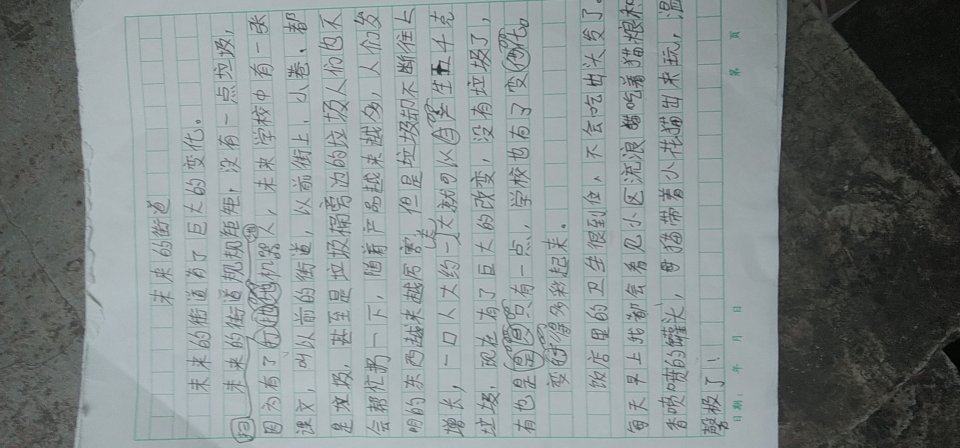 未来的街道
未来的街道有了巨大的变化。
未来的街道规规矩矩，没有一点垃圾，
因为有了机器人，未来学校中有一张
课文，叫以前的街道，以前街上，小巷、都
是垃圾，甚至是垃圾桶旁边的垃圾人们也不
会帮忙扔一下，随着产品越来越多，人们发
明的东西越来越厉害，但是垃圾却不断往上
增长，一口人大约一天就可以产生五千克
垃圾，现在有了巨大的改变，没有垃圾了，
有也是只有一点，学校也有了变化。
变得多彩起来。
饭店里的卫生很到位，不会吃出头发了。
每天早上我都会看见小区流浪猫吃着猫粮和
香喷喷的罐头，母猫带着小花猫出来玩，温
馨极了！
日期：年 月 日
第 页